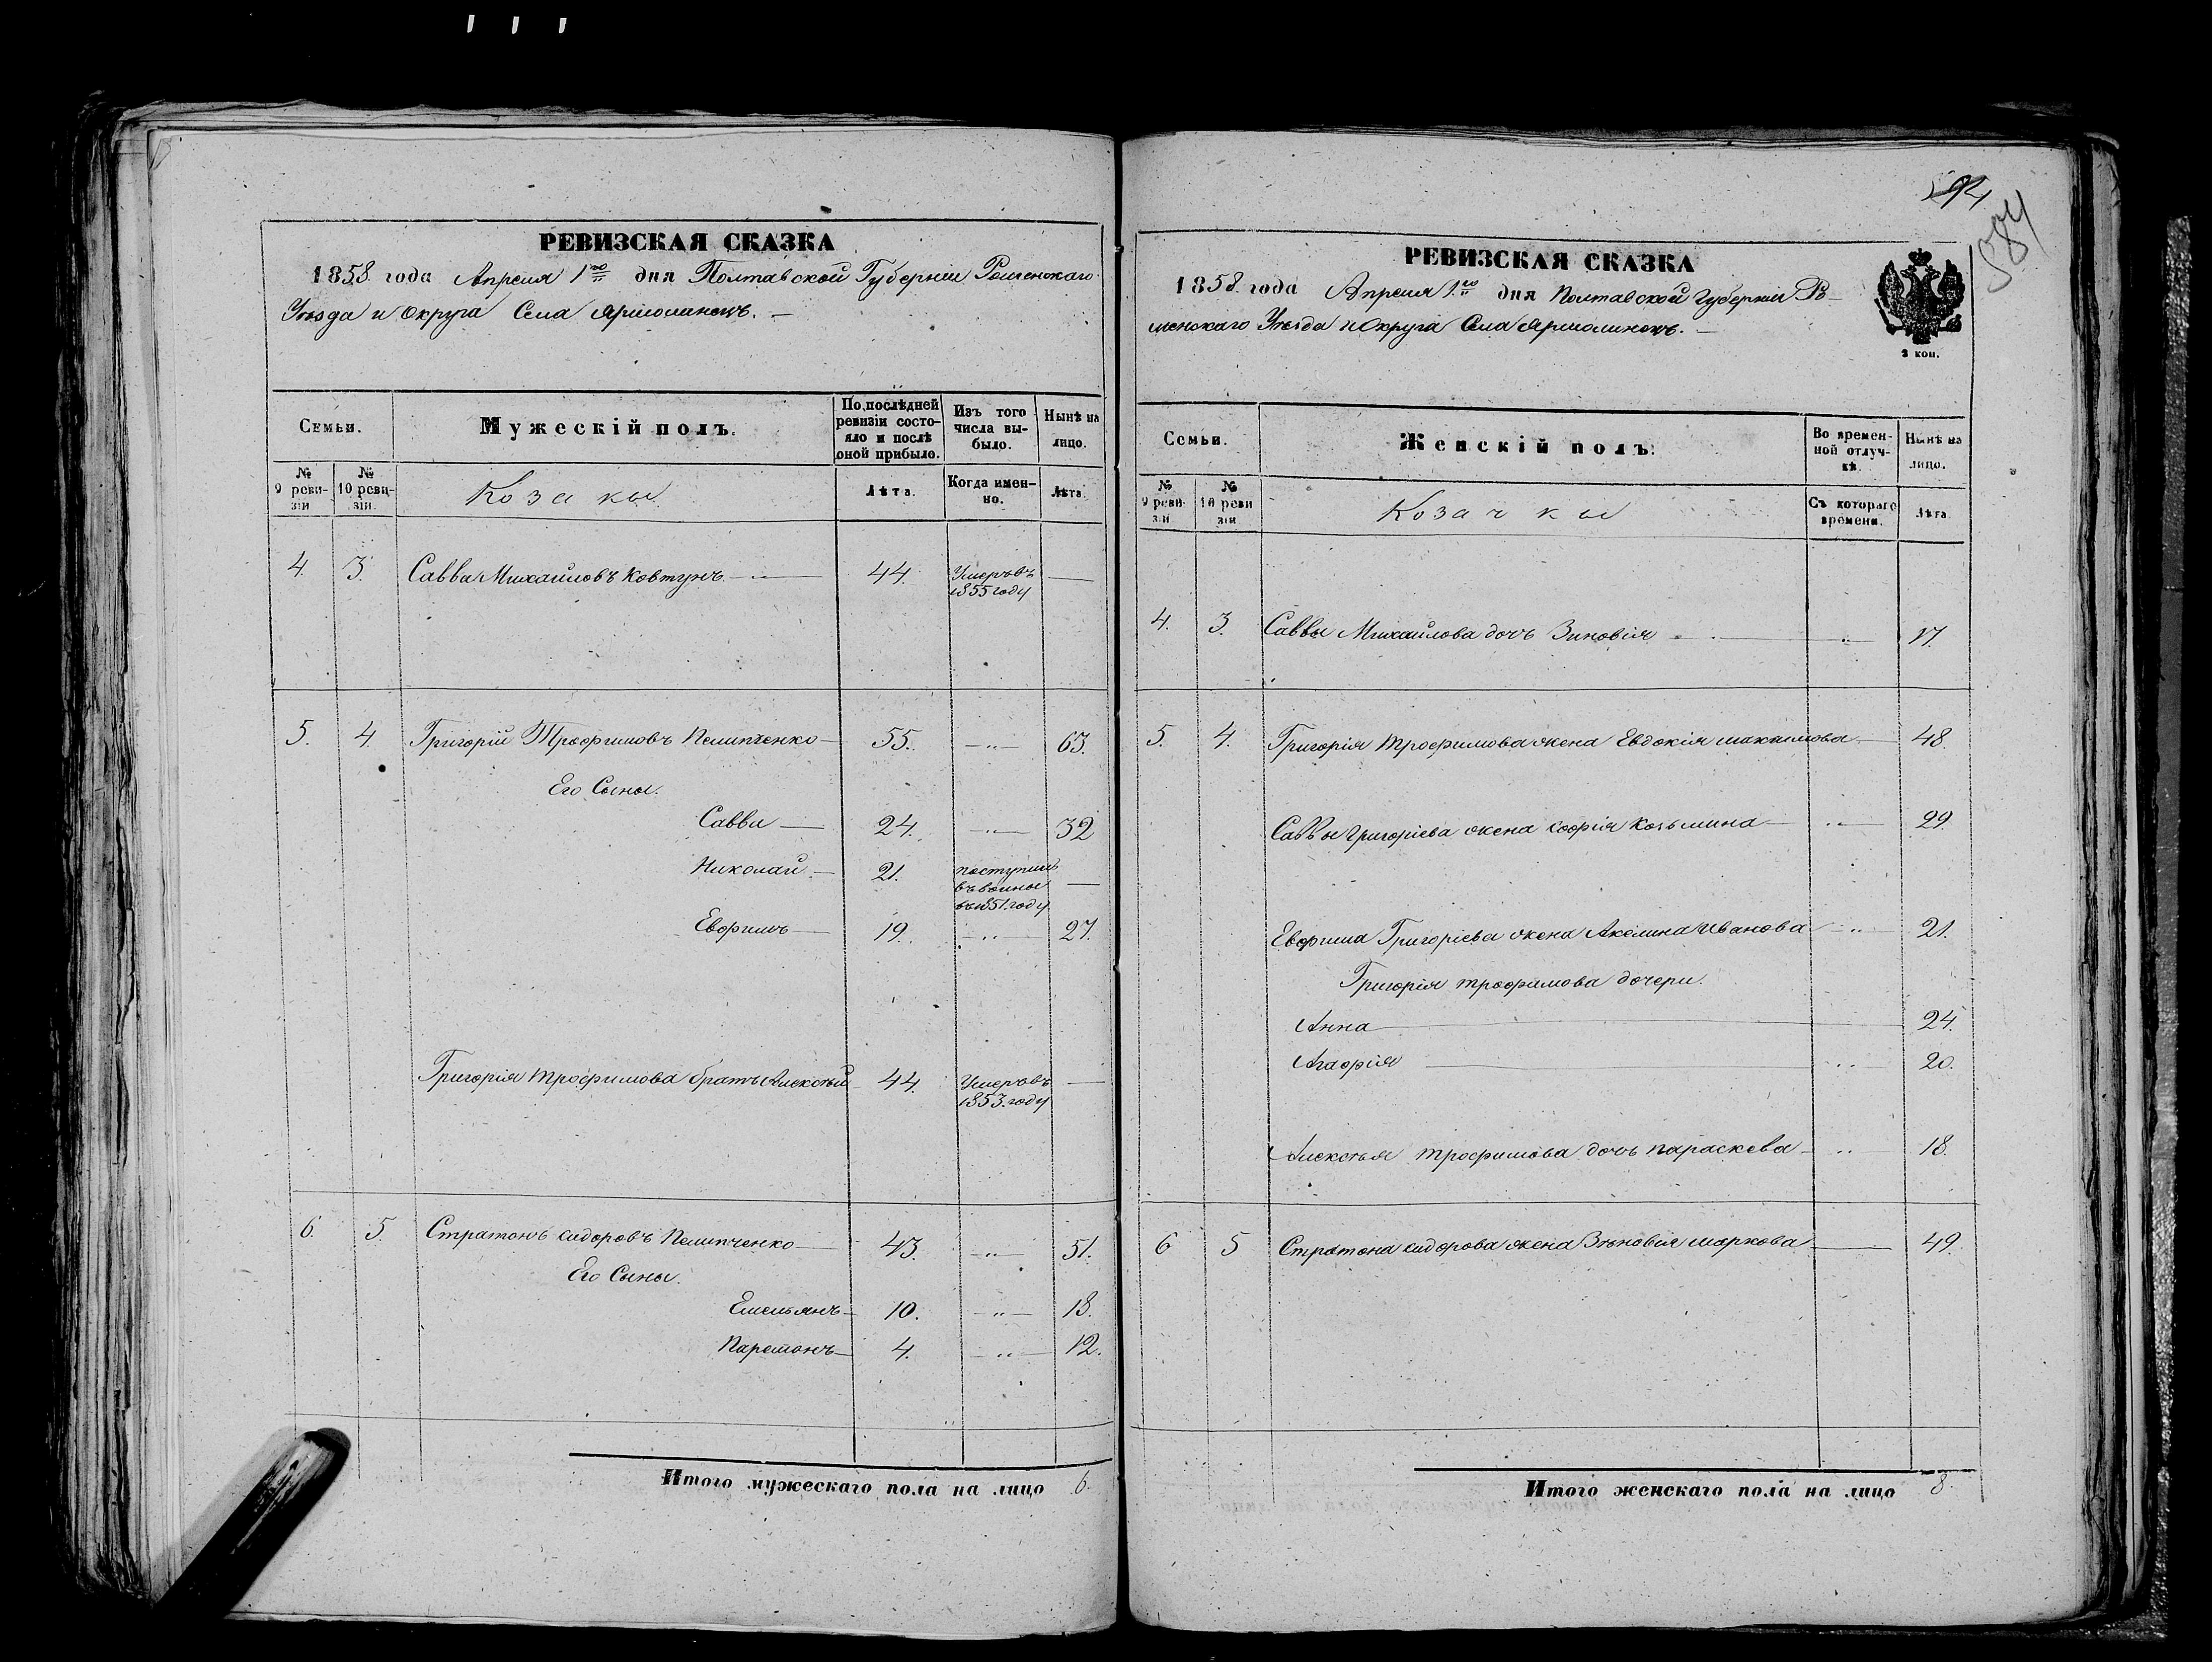 594
584
РЕВИЗСКАЯ СКАЗКА
1858 года Апреля 1го дня Полтавской Губерніи Роменскаго
Уезда и Округа Села Ярмолинець.
Семьи.
Мужескій полъ.
По послѣдней ревизіи состояло и послѣ оной прибыло.
Изъ того числа выбыло.
Нынѣ на лицо.
№ 9 ревизіи
№ 10 ревизіи.
Козаки
Лѣта.
Когда именно.
Лѣта
4. 3. Савва Михайловъ Ковтунъ 44. Умеръ въ 1855 году
5. 4. Григорій Трофимовъ Пелипченко 55. 63.
Его Сыны.
Савва 24. 32
Николай 21. поступилъ въ воины въ 1851. году
Евфимъ 19. 27.
Григорія Трофимова братъ Алексѣй 44. Умеръ въ 1853. году
6. 5. Стратонъ Сидоровъ Пелипченко 43. 51.
Его Сыны.
Емельянъ 10. 18.
Парамонъ 4. 12.
Итого мужескаго пола на лицо 6.
РЕВИЗСКАЯ СКАЗКА
1858. года Апреля 1.го дня Полтавской Губерніи Ро-
менскаго Уезда и Округа Села Ярмолинець.
3 коп.
Семьи.
Женскій полъ.
Во временной отлучкѣ.
Нынѣ на лицо.
№ 9 ревизіи
№ 10 ревизіи
Козачки
Съ котораго времени.
Лѣта
4. 3. Саввы Михайлова дочь Зиновія 17.
5. 4. Григорія Трофимова жена Евдокія Максимова 48.
Саввы Григоріева жена Софія Козьмина 29.
Евфима Григоріева жена Акелина Иванова 21.
Григорія Трофимова дочери.
Анна 24.
Агафія 20.
Алексѣя Трофимова дочь Параскева 18.
6 5 Стратона Сидорова жена Зѣновія Маркова 49.
Итого женскаго пола на лицо 8.